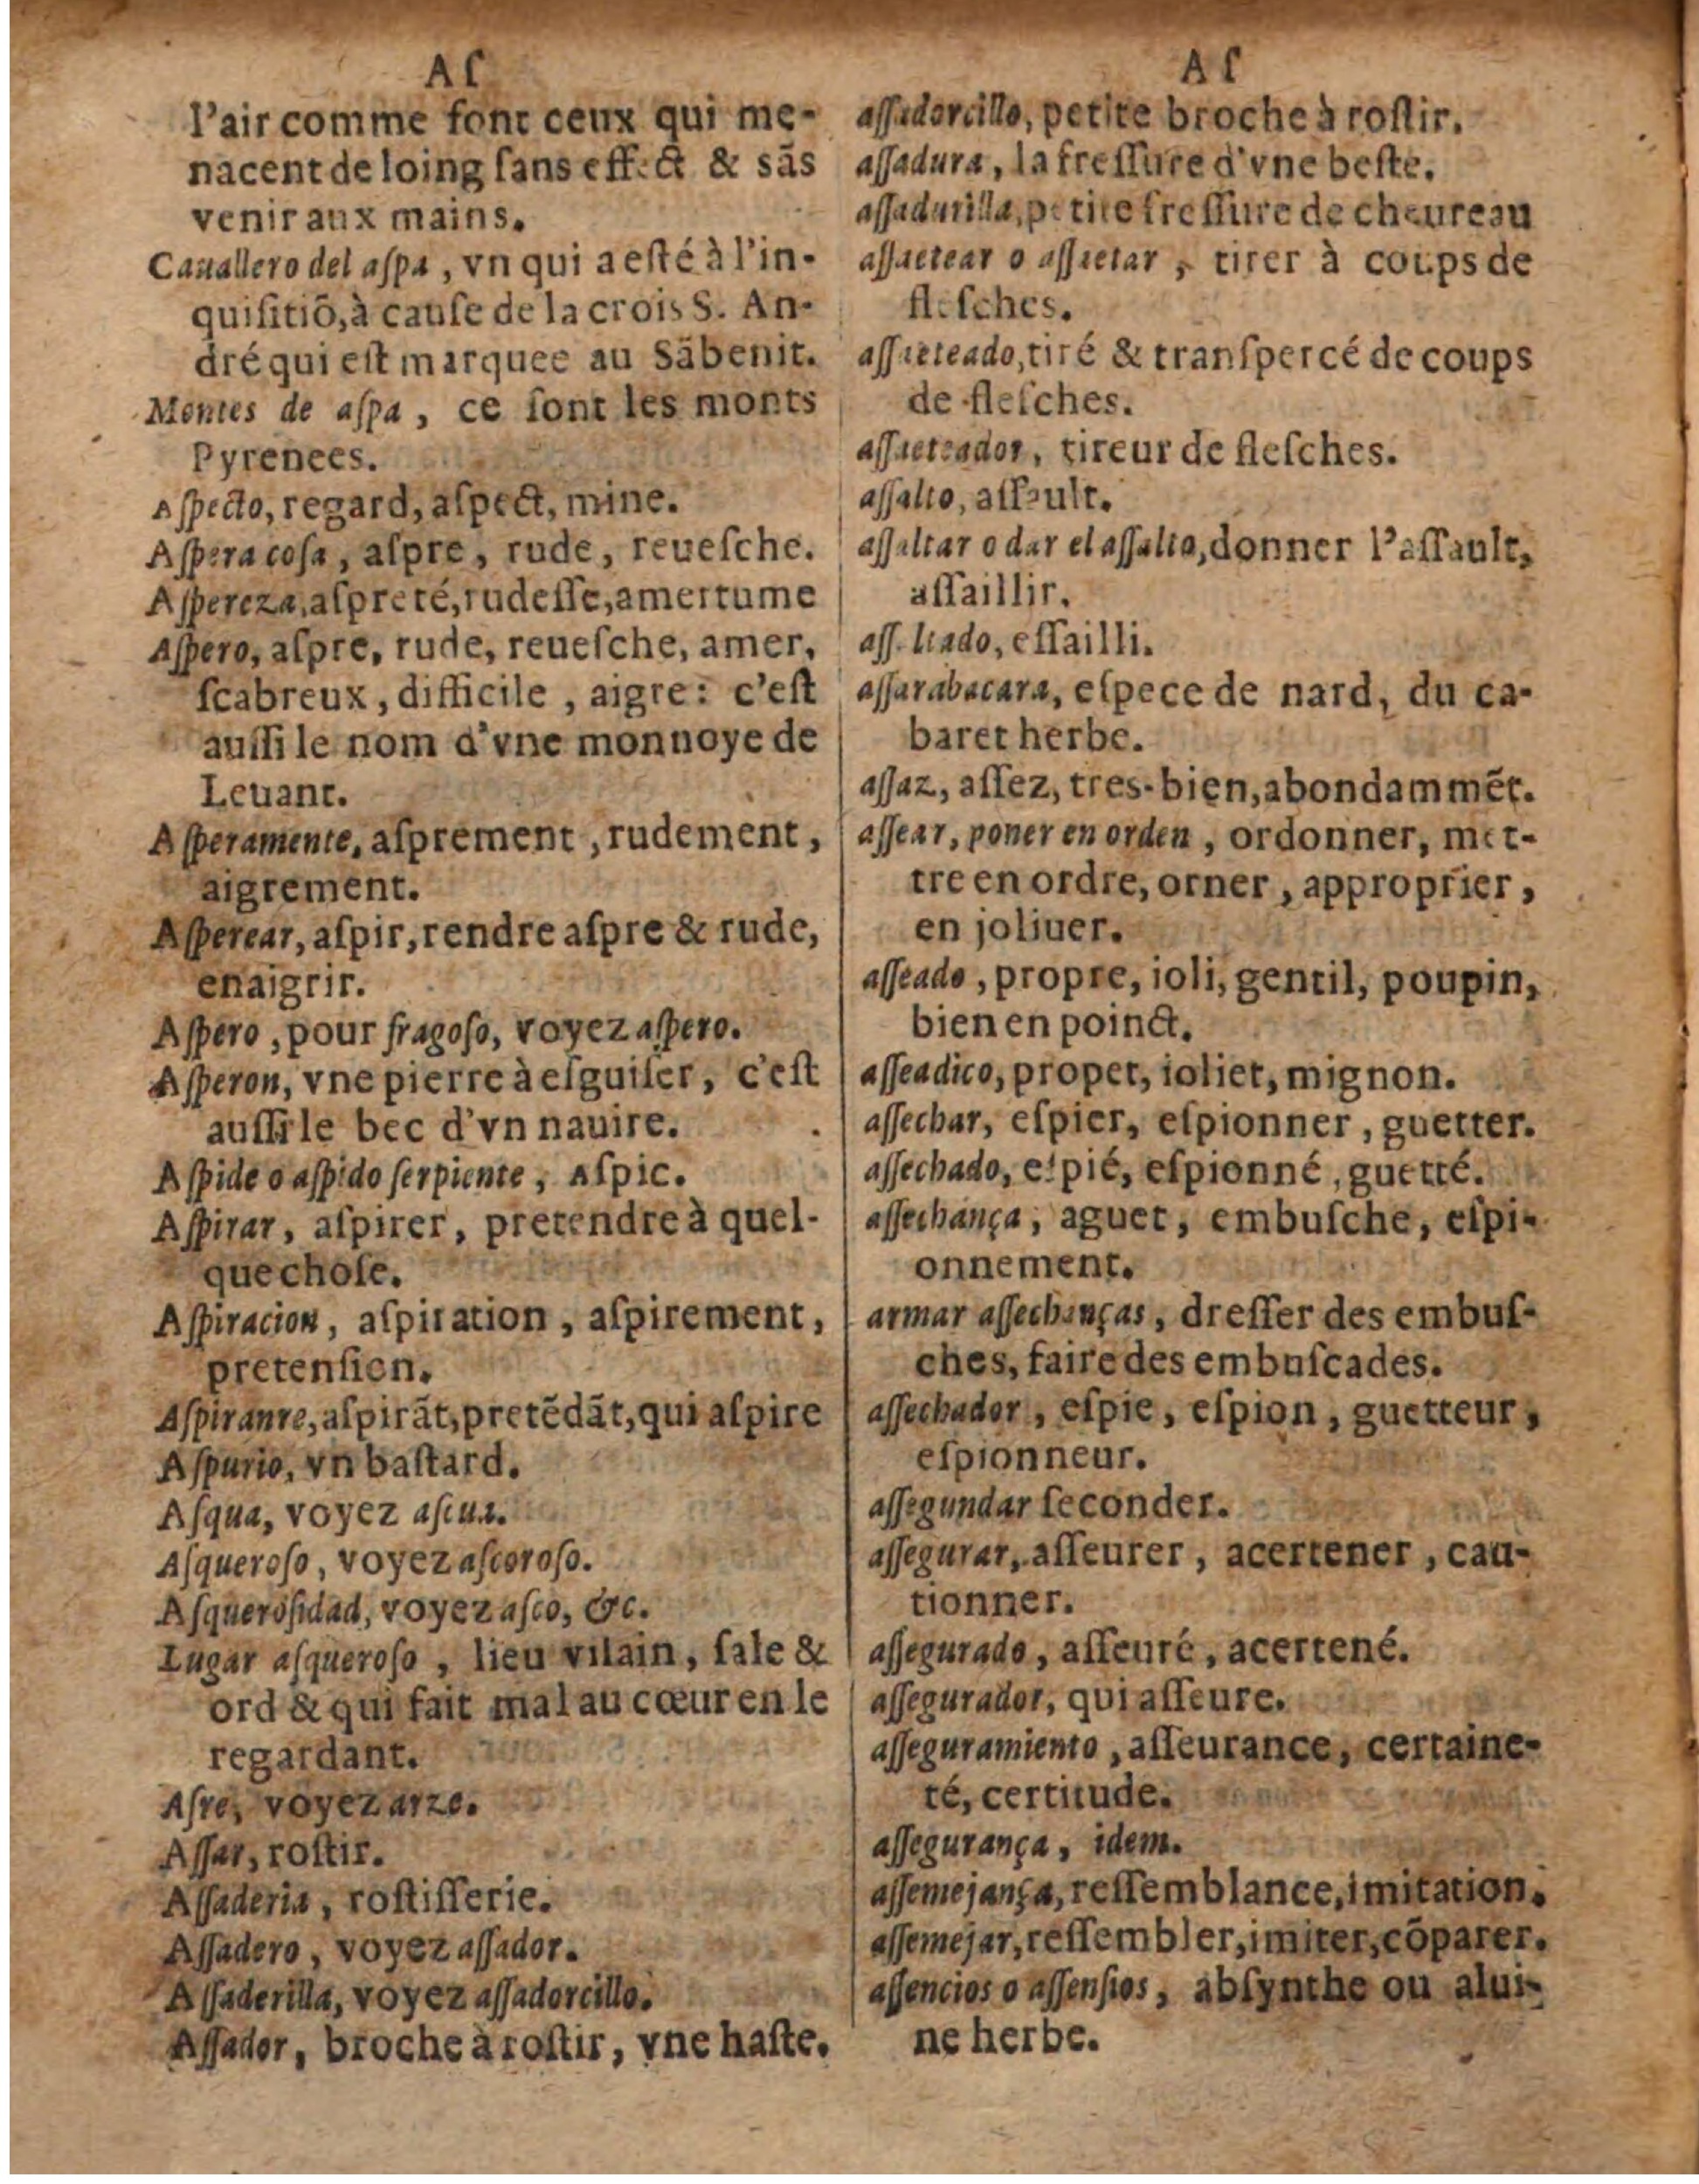 Aſ
l'air comme font ceux qui me-
nacent de loing ſans effect & sās
venir aux mains.
Cauallero del aſpa, vn qui a eſté à l'in-
quiſitiō, à cauſe de la crois S. An-
dré qui eſt marquee au Sābenit.
Montes de aſpa, ce ſont les monts
Pyrenees.
Aſpecto, regard, aſpect, mine.
Aſpera coſa, aſpre, rude, reueſche.
Aſpereza, aſpreté, rudeſſe, amertume
Aſpero, aſpre, rude, reueſche, amer,
ſcabreux, difficile, aigre: c'eſt
auſſi le nom d'vne monnoye de
Leuant.
Aſperamente, aſprement, rudement,
aigrement.
Aſperear, aſpir, rendre aſpre & rude,
enaigrir.
Aſpero, pour fragoſo, voyez aſpero.
Aſperon, vne pierre à eſguiſer, c'eſt
auſſi le bec d'vn nauire.
Aſpide o aſpido ſerpiente, Aſpic.
Aſpirar, aſpirer, pretendre à quel-
que choſe.
Aſpiracion, aſpiration, aſpirement,
pretenſion.
Aſpirante, aſpirāt, pretēdāt, qui aſpire
Aſpurio, vn baſtard.
Aſqua, voyez aſcua.
Aſqueroſo, voyez aſcoroſo.
Aſqueroſidad, voyez aſco, &c.
Lugar aſqueroſo, lieu vilain, ſale &
ord & qui fait mal au cœur en le
regardant.
Aſre, voyez arze.
Aſſar, roſtir.
Aſſaderia, roſtiſſerie.
Aſſadero, voyez aſſador.
Aſſaderilla, voyez aſſadorcillo.
Aſſador, broche à roſtir, vne haſte.
Aſ
aſſadorcillo, petite broche à roſtir.
aſſadura, la freſſure d'vne beſte.
aſſadurilla, petite freſſure de cheureau
aſſaetear o aſſaetar, tirer à coups de
fleſches.
aſſaeteado, tiré & tranſpercé de coups
de fleſches.
aſſaeteador, tireur de fleſches.
aſſalto, aſſault.
aſſaltar o dar el aſſalto, donner l'aſſault,
aſſaillir.
aſſaltado, eſſailli.
aſſarabacara, eſpece de nard, du ca-
baret herbe.
aſſaz, aſſez, tres-bien, abondammēt.
aſſear, poner en orden, ordonner, met-
tre en ordre, orner, approprier,
en joliuer.
aſſeado, propre, ioli, gentil, poupin,
bien en poinct.
aſſeadico, propet, ioliet, mignon.
aſſechar, eſpier, eſpionner, guetter.
aſſechado, eſpié, eſpionné, guetté.
aſſechança, aguet, embuſche, eſpi-
onnement.
armar aſſechanças, dreſſer des embuſ-
ches, faire des embuſcades.
aſſechador, eſpie, eſpion, guetteur,
eſpionneur.
aſſegundar ſeconder.
aſſegurar, aſſeurer, acertener, cau-
tionner.
aſſegurado, aſſeuré, acertené.
aſſegurador, qui aſſeure.
aſſeguramiento, aſſeurance, certaine-
té, certitude.
aſſegurança, idem.
aſſemejança, reſſemblance, imitation.
aſſemejar, reſſembler, imiter, cōparer.
aſſencios o aſſenſios, abſynthe ou alui-
ne herbe.